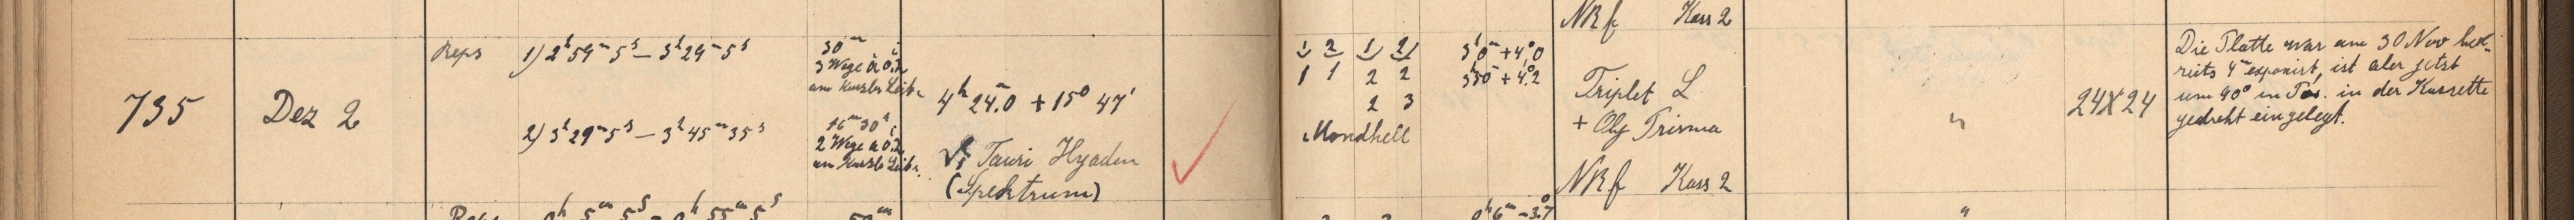 NRf Kass 2
Reps 1) 2h 59m 5s – 3h 29m 5s
30m
3 Wege à 0.2
am Kurbb
735 Dez 2
4h 24m.0 + 15° 47'
2) 3h 29m 5s – 3h 45m 35s
16m 30s
2 Wege à 0.2
am Kurbb
Tauri Hyaden
(Spektrum)
1 2 1 2
1 1 2 2
2 3
Mondhell
3h 0m + 4°,0
3h 50m + 4°.2
Triplet L
+ Obj Prisma
NRf Kass 2
"
24X24
Die Platte war am 30 Nov be-
reits 4m exponirt, ist aber jetzt
um 90° in Pos. in der Kassette
gedreht eingelegt.
Reps 0h 5m 5s – 0h 55m 5s
50m
0h 6m – 3°.7
"